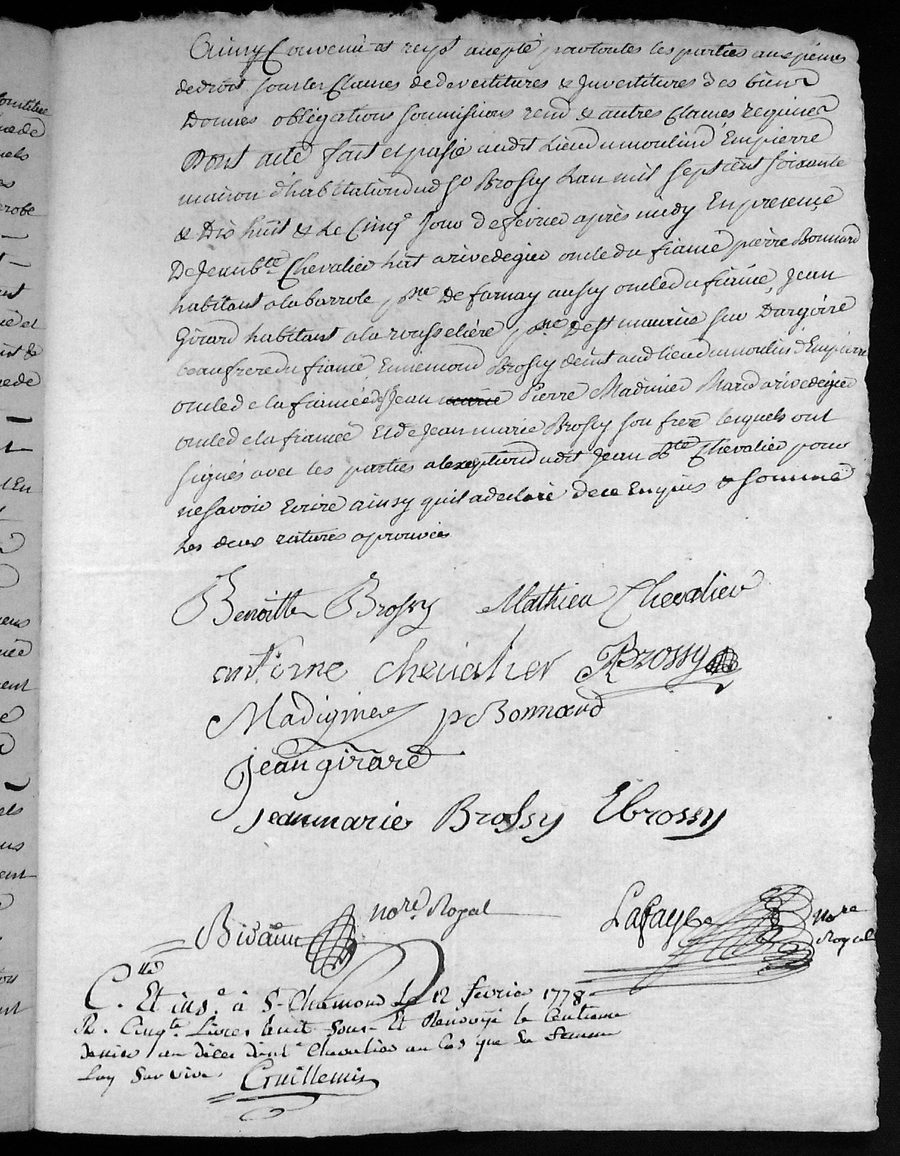 Ainsy Convenu et recip.t accepté par toutes les parties aux peines
de droit sous les Clauses de devestitures & Investitures des biens
Donnés obligations soumissions renō & autres Clauses requises
Dont acte fait et passé audit Lieu du moulin d'Empierre
maison d'habitation du sr Brossy L'an mil sept cent soixante
& Dix huit & Le Cinq.e Jour de fevrier après midy En presence
De Jean b.te Chevalier hat a rivedegier oncle du fiancé pierre Bonnard
habitant a la barrole p.sse De farnay aussy oncle du fiancé, Jean
Girard habitant a la rousselière p.sse De st maurice sur Dargoire
beaufrere du fiancé Ennemond Brossy de int audt lieu du moulin d'Empierre
oncle de la fiancée Jean marie Pierre Madinier Mard a rivedegier
oncle de la fiancée Et de Jean marie Brossy son frere lesquels ont
signés avec les parties a l'exeption dudit Jean b.te Chevalier pour
ne savoir Ecrire ainsy qu'il a declaré de ce Enquis & sommé
Les deux ratures aprouvées
Benoitte Brossy Mathieu Chevalier
antoine chevalier Brossy
Madignier p Bonnard
jean girard
jean marie Brossy Ebrossy
not.re Royal Lafaye no.re
Royal
C.lé Et ins.é à St Chamond Le 12 fevrier 1778
R. Cinq.te Livres huit Sous Et Renvoyé le Centieme
denier au déces dud.t Chevalier au Cas que Sa femme
Luy Survive. Guillemin